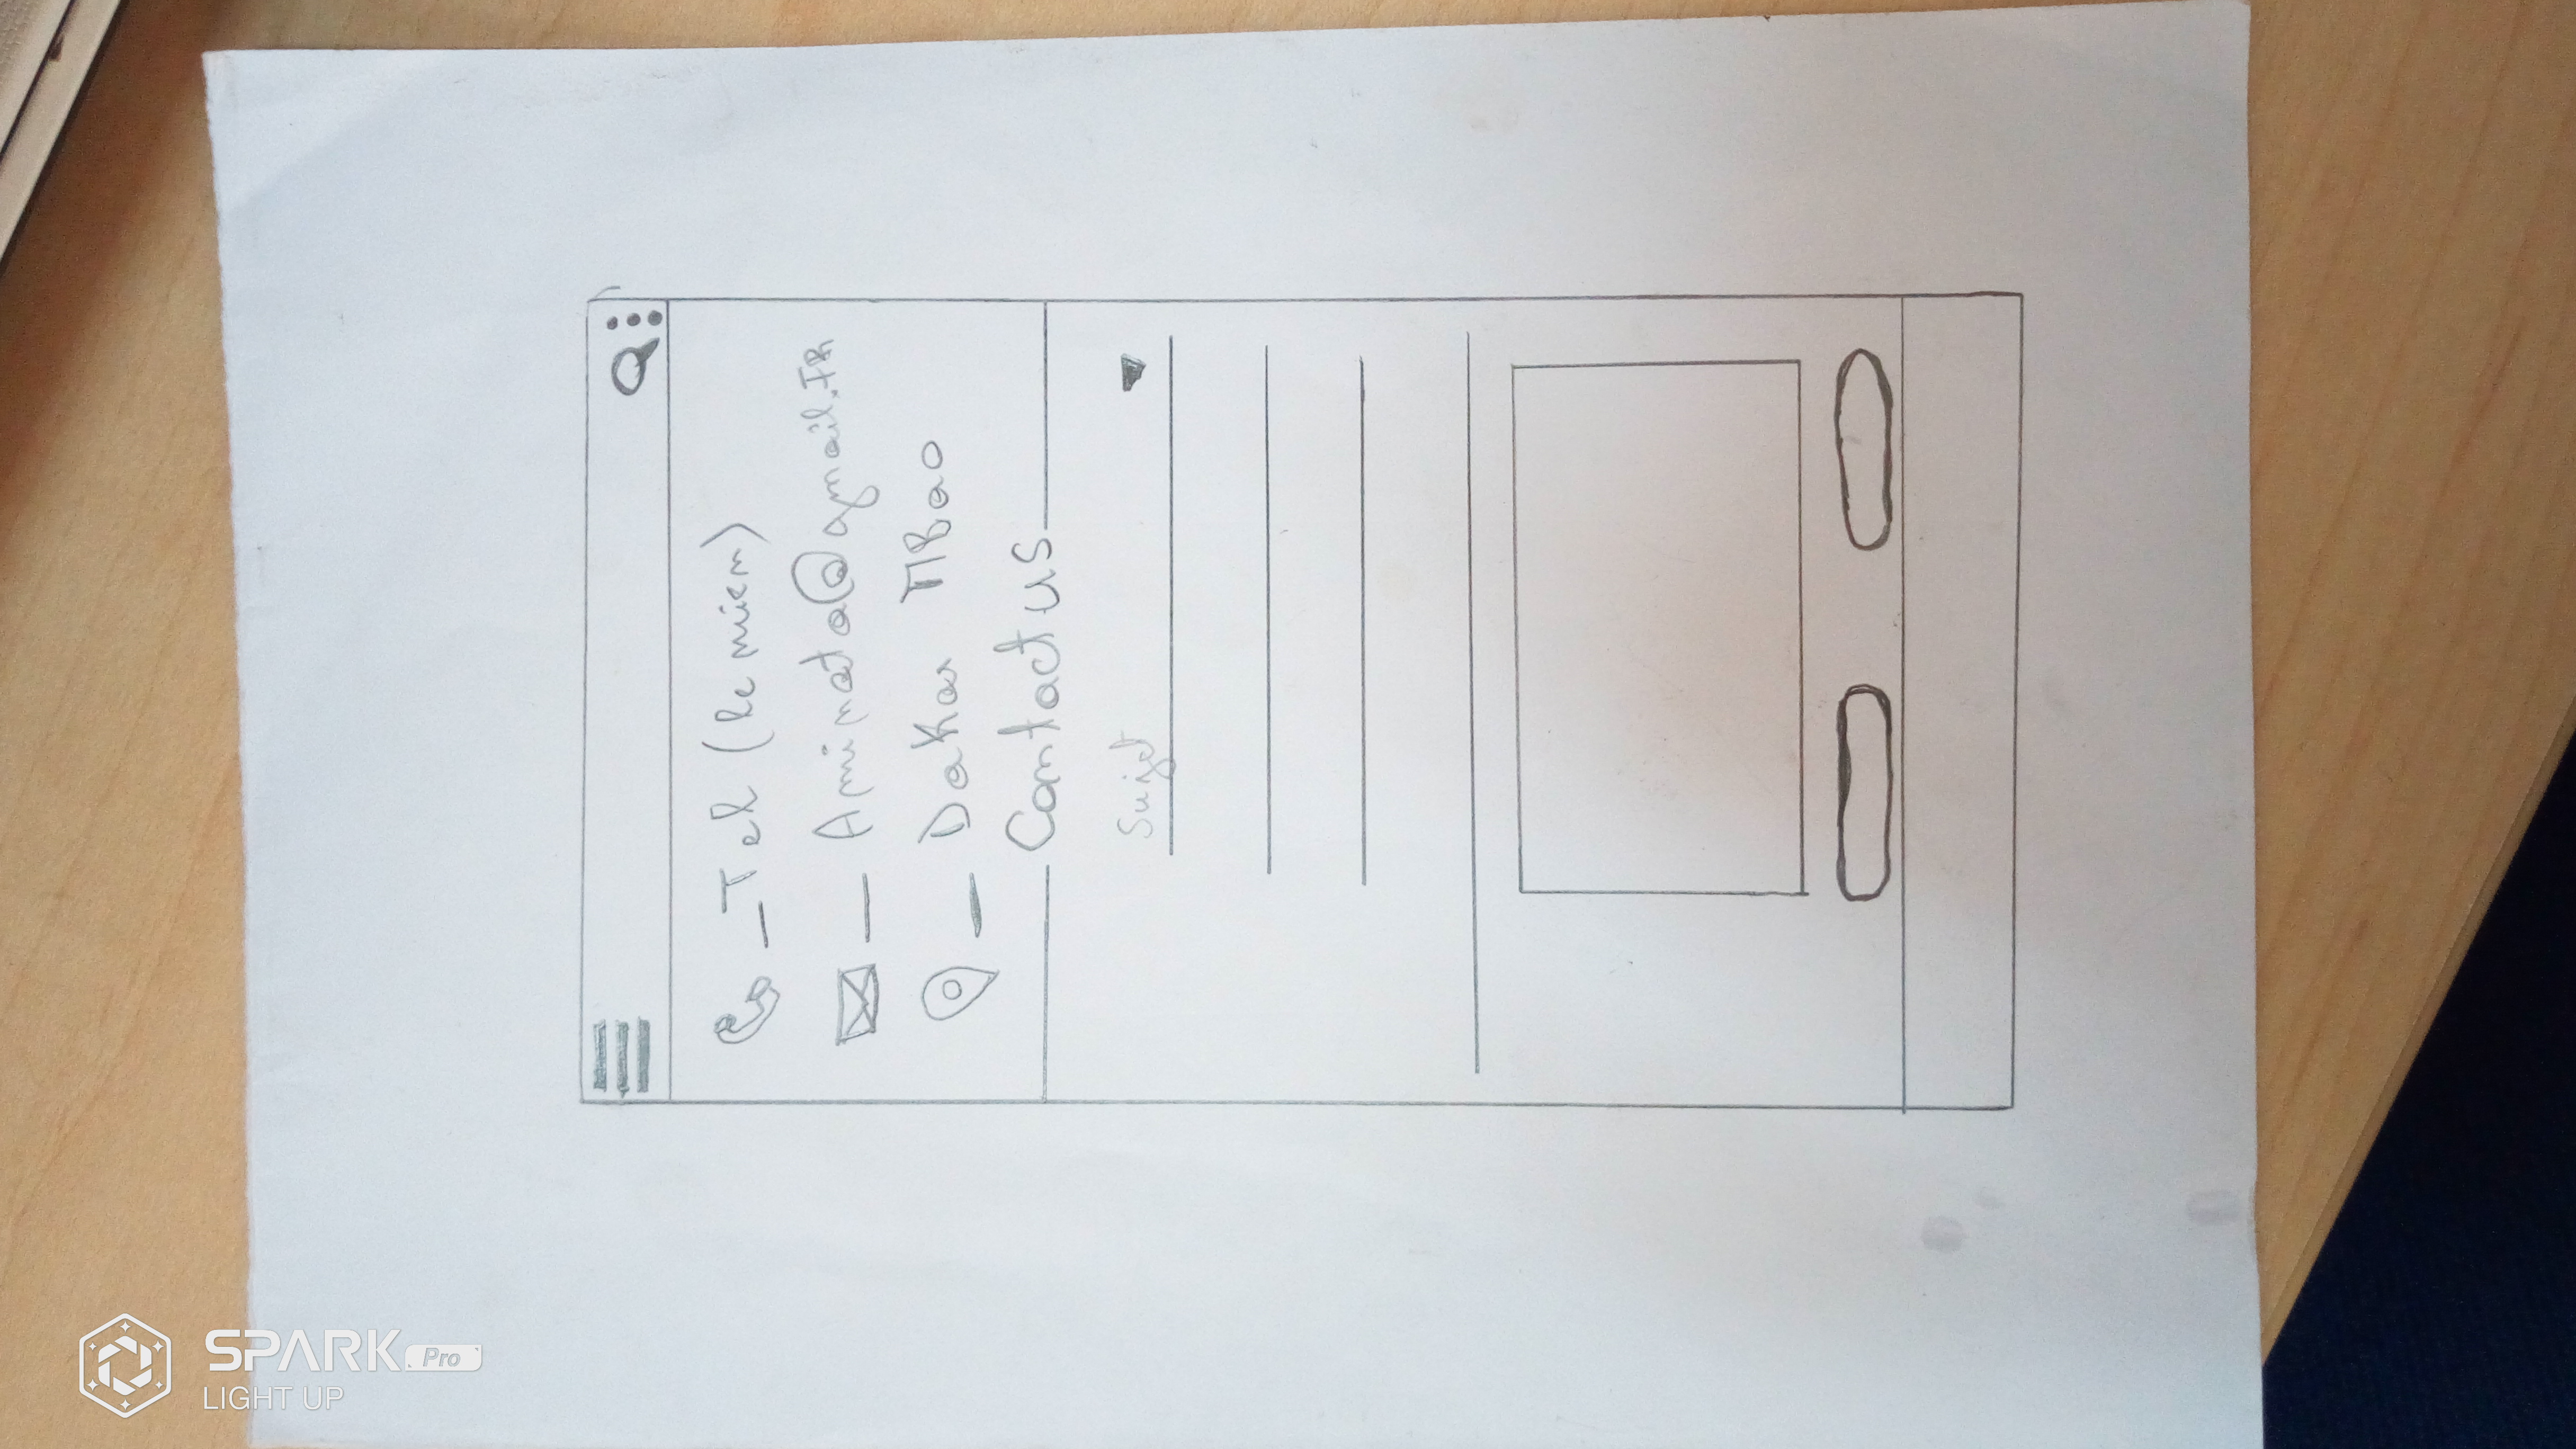 Tel (le mien)
Aminata@gmail.FR
Dakar MBao
Contact us
Sujet
SPARK Pro
LIGHT UP